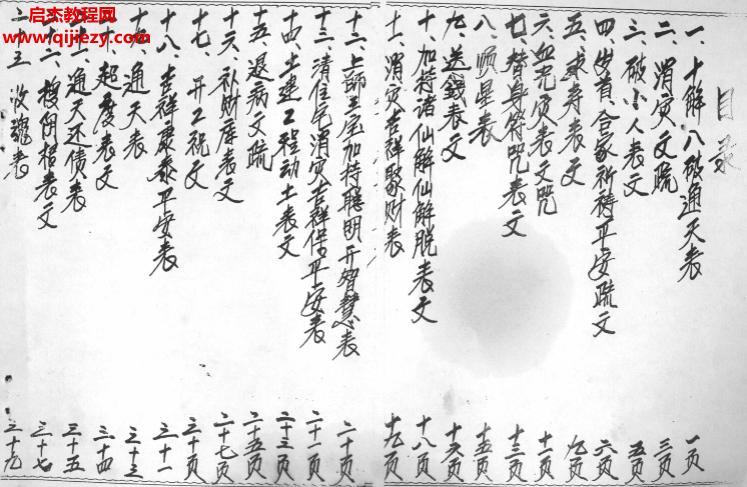 启杰教程网
www.qijiezy.com
目录
一、十解八破通天表 一页
二、消灾文疏 三页
三、破小人表文 五页
四、岁首、合家祈祷平安疏文 六页
五、求寿表文 九页
六、血光灾表文咒 十一页
七、替身符咒表文 十三页
八、顺星表 十五页
九、送錢表文 十六页
十、加持诸仙解仙解脱表文 十八页
十一、消灾吉祥聚财表 十九页
十二、上师三宝加持聪明开智慧表 二十页
十三、清住宅消灾吉祥保平安表 二十一页
十四、土建工程动土表文 二十三页
十五、退病文疏 二十五页
十六、补财库表文 二十七页
十七、开工祝文 三十页
十八、吉祥康泰平安表 三十一
十九、通天表 三十三
二十、超度表文 三十四
二十一、通天还债表 三十五
二十二、拨阴楂表文 三十七
二十三 收魂表 三十九